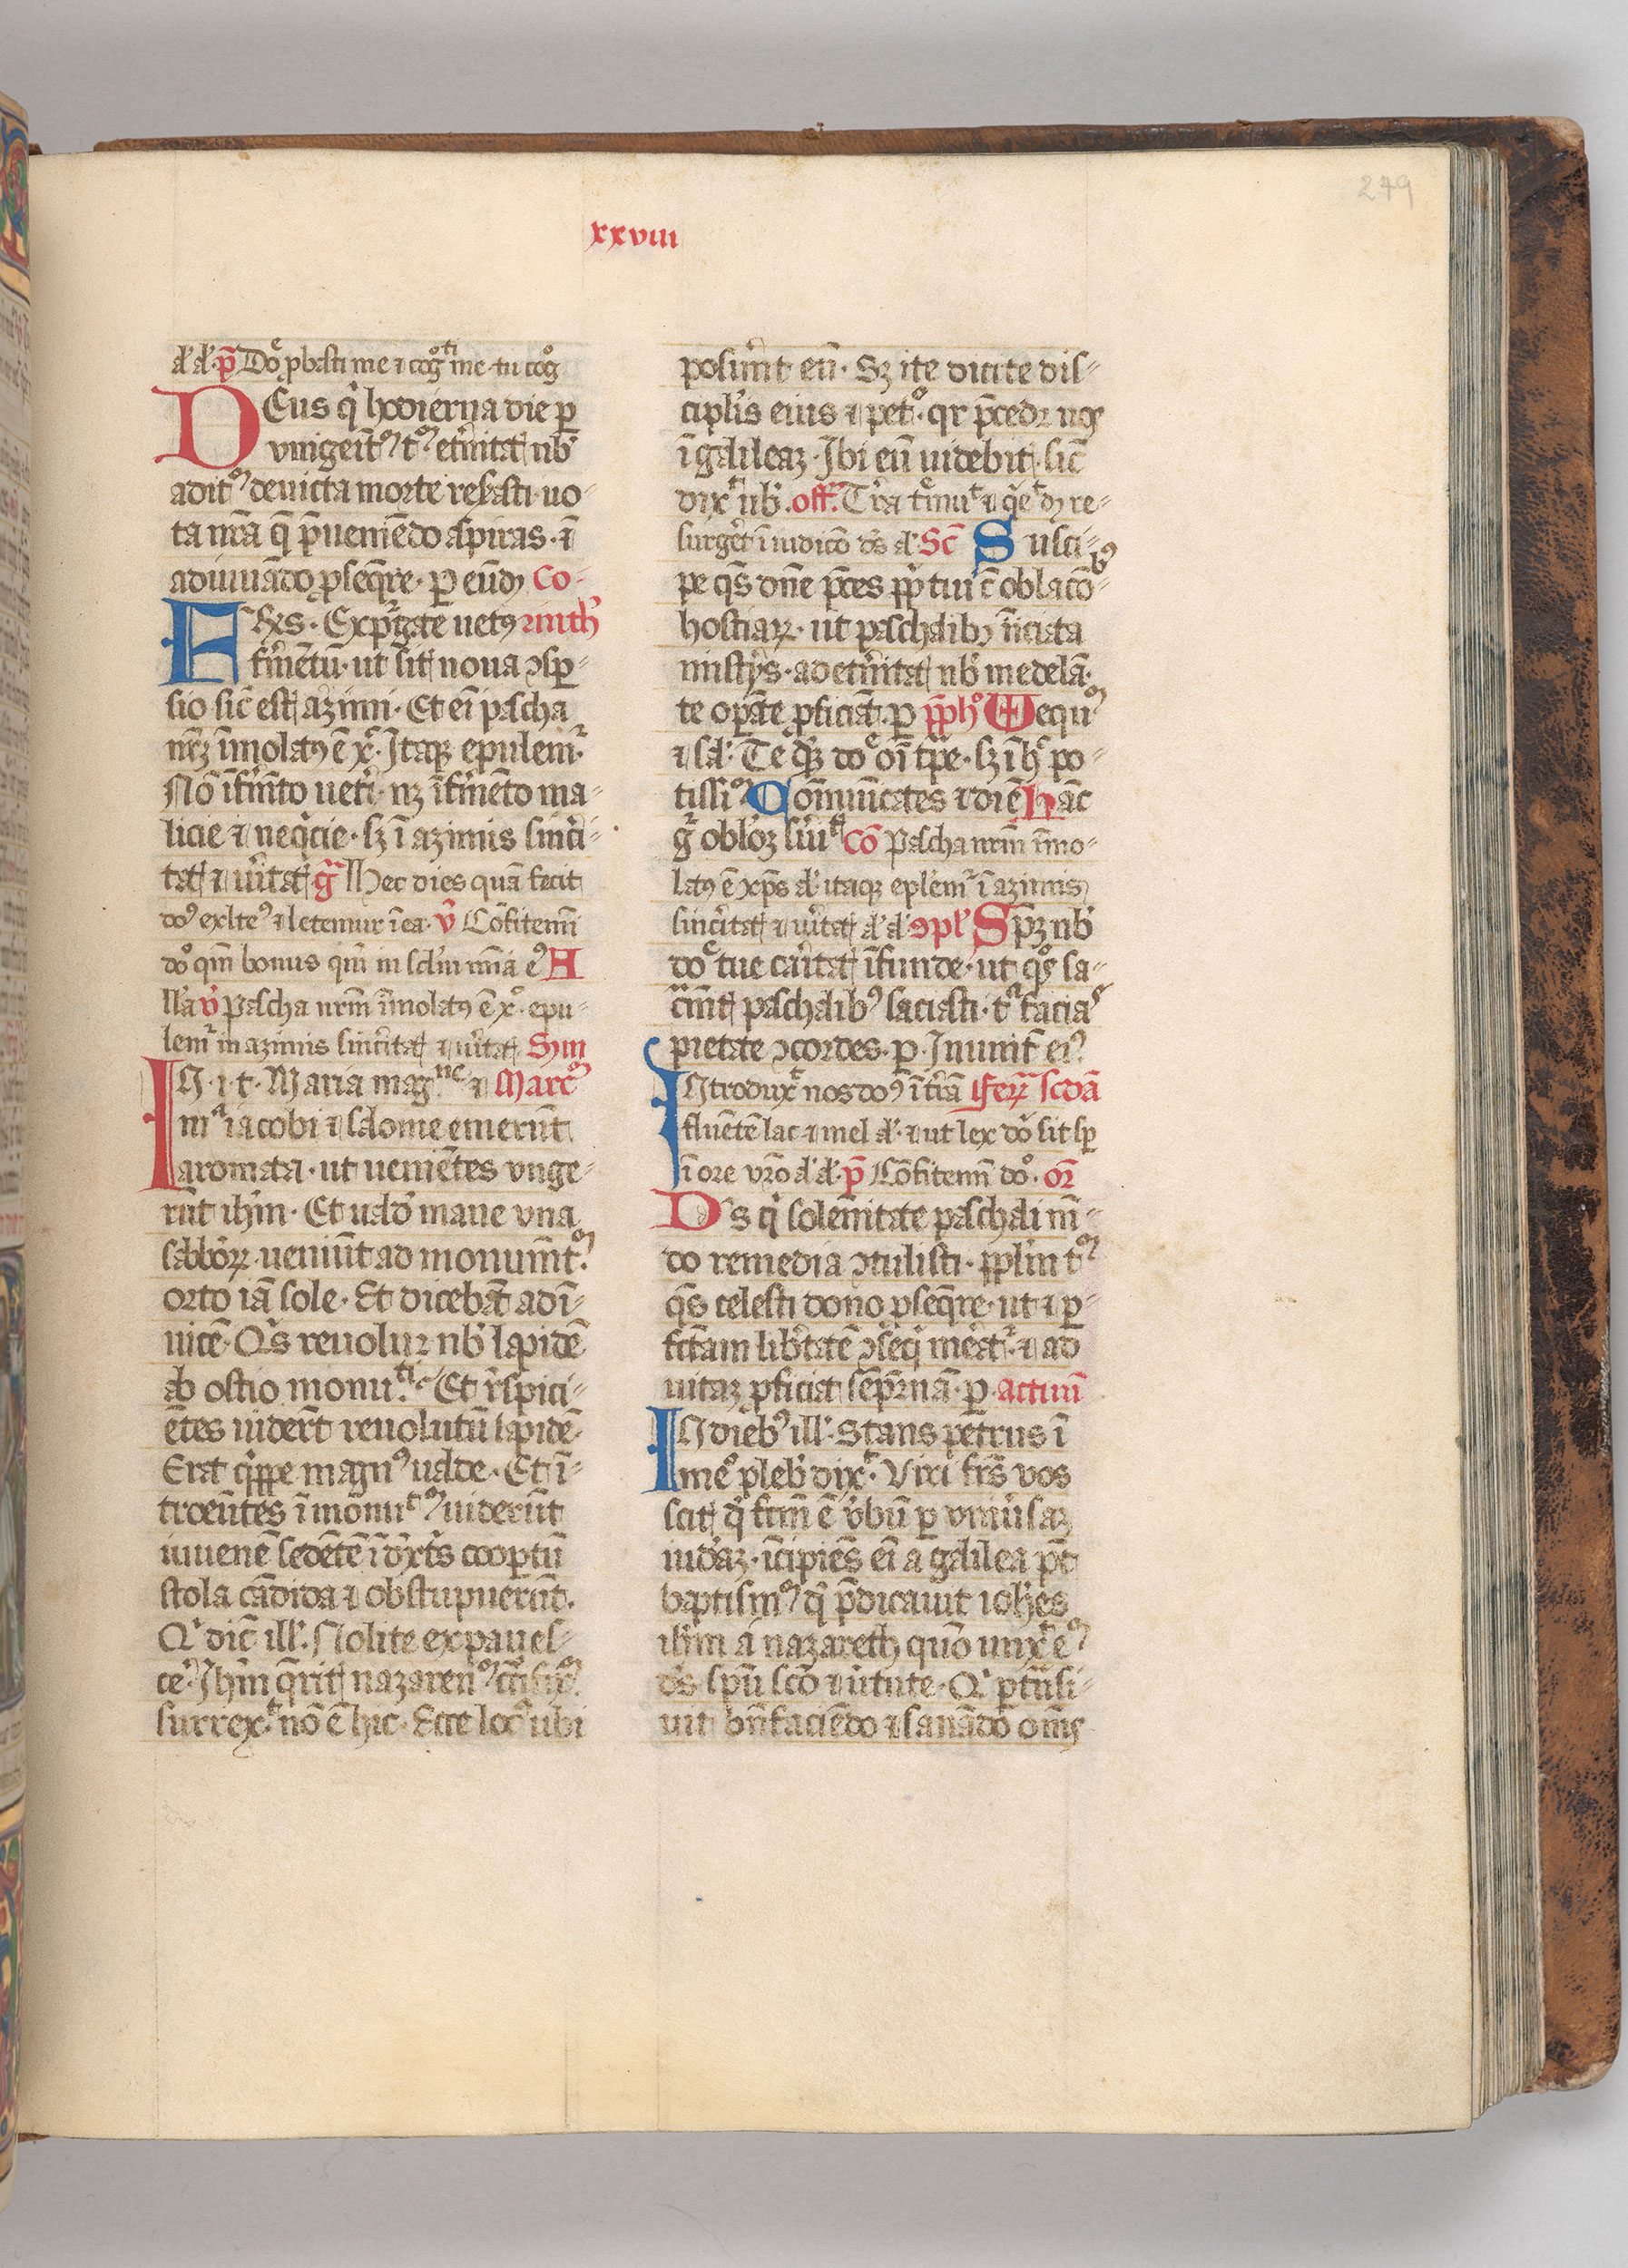 249
xxviii
a̅l̅ a̅l̅. p̅s̅ Doe p̱basti me ⁊ cog̅ti me. tu cog̅o
DEus q̇ hodierna die p̱
vnigeit̅oꝫ tu̅ et̅nitat nb̅
aditoꝫ deuicta morte reẜasti. uo-
ta nr̅a q̅ p̅uenie̅do aspiras. ⁊
adiuua̅do ꝓseq̅re. p̱ eu̅dꝫ Co-
Fr̅es. Expurgate uetꝰ rinth̅
fm̅entu̅. ut sit noua ꝯsp̱-
sio sic̅ estis azimi. Et ei̅ pascha
nr̅ꝫ i̅molatꝰ e̅ xp̅c. Itaqꝫ epulem̅.
No̅ i̅ fm̅to ueti̅. nꝫ i̅ fm̅e̅to ma-
licie ⁊ neq̇cie. sꝫ i̅ azimis sinc̅i-
tat ⁊ ue̅itat g̅ Hec dies qua̅ fecit
do̅ꝰ exlteꝰ ⁊ letemur i̅ ea. v̅ Co̅fitem̅i
do̅o qm̅ bonus qm̅ in sclm̅ mi̅a eꝰ A
ll̅a v̅ pascha nrm̅ i̅molatꝰ e̅ xo. epu-
lem̅ in azimis sinc̅itat ⁊ ue̅itat. Sm̅
IN. i. t. Maria magne ⁊ Marc̅u
ma iacobi ⁊ salome emeru̅t
aromata. ut uenie̅tes vnge-
re̅t ih̅m. Et uald̅ mane vna
sabboꝝ. ueniu̅t ad monum̅toꝫ.
orto ia̅ sole. Et diceba̅t adi̅-
uice̅. Qis reuoluꝫ nb̅ lapide̅
ab ostio monu.ti Et r̅spici-
e̅tes uider̅t reuolutu̅ lapide̅.
Erat q̇ppe magnꝰ ualde. Et i̅-
troeu̅tes i̅ monutoꝫ uideru̅t
iuuene̅ sede̅te̅ i̅ dx̅tis coop̱tu̅
stola ca̅dida ⁊ obstupueru̅t.
Qi dic̅ ill̅. Nolite expaues-
ce̅. Ih̅m q̅rit nazarenoꝫ c̅cifixoꝫ.
surrex.t no̅ e̅ hic. Ecce locꝰ ubi
posuer̅nt eu̅. Sꝫ ite dicite dis-
cipl̅is eius ⁊ peto. qr p̅cedꝫ uos
i̅ galileaꝫ. Ibi eu̅ uidebit. sic̅
dixt ub̅. off̅. T̅ra tm̅uit ⁊ q̇euit dꝫ re-
surge̅t i̅ iudico̅ ds̅ a̅l̅ Sc̅ Susci-
pe qs̅ dn̅e p̅ces pp̅ tui c̅ oblaco̅ibꝰ
hostiaꝝ. ut paschalibꝫ i̅iciata
mist̅ijs. ad et̅nitat nb̅ medela̅
te op̱a̅te ꝓficia̅t. p̱ pp̅ho̅ Vequꝫ
⁊ sal̅. Te q̇dꝫ doe oi̅ tp̅e. sꝫ i̅ hc̅ po-
tissi.oꝫ Com̅uni̅cates ⁊ die̅ Ha̅c
g̅ obl̅oꝫ siuit Co̅ Pascha nrm̅ i̅mo-
latꝰ e̅ xp̅s a̅l̅ itaqꝫ eplem̅ i̅ azimis
sinc̅itat ⁊ ue̅itat a̅l̅ a̅l̅ ꝯpl̅ Sp̅ꝫ nb̅
doe tue ca̅itat i̅funde. ut qos sa-
c̅am̅t paschalibꝰ saciasti. tua facias
pietate ꝯcordes. p̱. In unit̅ eiꝰ
INtroduxt nos do̅ꝰ i̅ tr̅a̅ fer̅ scd̅a
flue̅te̅ lac ⁊ mel a̅l̅. ⁊ ut lex do̅i sit sp̱
i̅ ore vr̅o a̅l̅ a̅l̅. p̅s̅ Co̅fitem̅i do̅o. or̅
Ds̅ q̇ solem̅itate paschali mu̅-
do remedia ꝯtulisti. pplm̅ tuoꝫ
qs̅ celesti dono ꝓseq̅re. ut ⁊ p̱-
fc̅tam lib̅tate̅ ꝯseq̇ me̅at. ⁊ ad
uitaꝫ ꝓficiat semp̅itna̅. p̱. actuu̅
IN diebꝰ ill̅. Stans petrus i̅
meo pleb̅ dixt. Viri frs̅ vos
scit q̇ fc̅m e̅ v̅bu̅ p̱ vniue̅saꝫ
iudeaꝫ. i̅cipie̅s ei̅ a galilea pt̅
baptismoꝫ q̇ p̅dicauit ioh̅es
ih̅m a nazareth quo̅ unx.t eoꝫ
ds̅ spu̅ sco̅ ⁊ ui̅tute. Qi p̱tra̅si-
uit bn̅faciendo ⁊ sana̅do om̅s